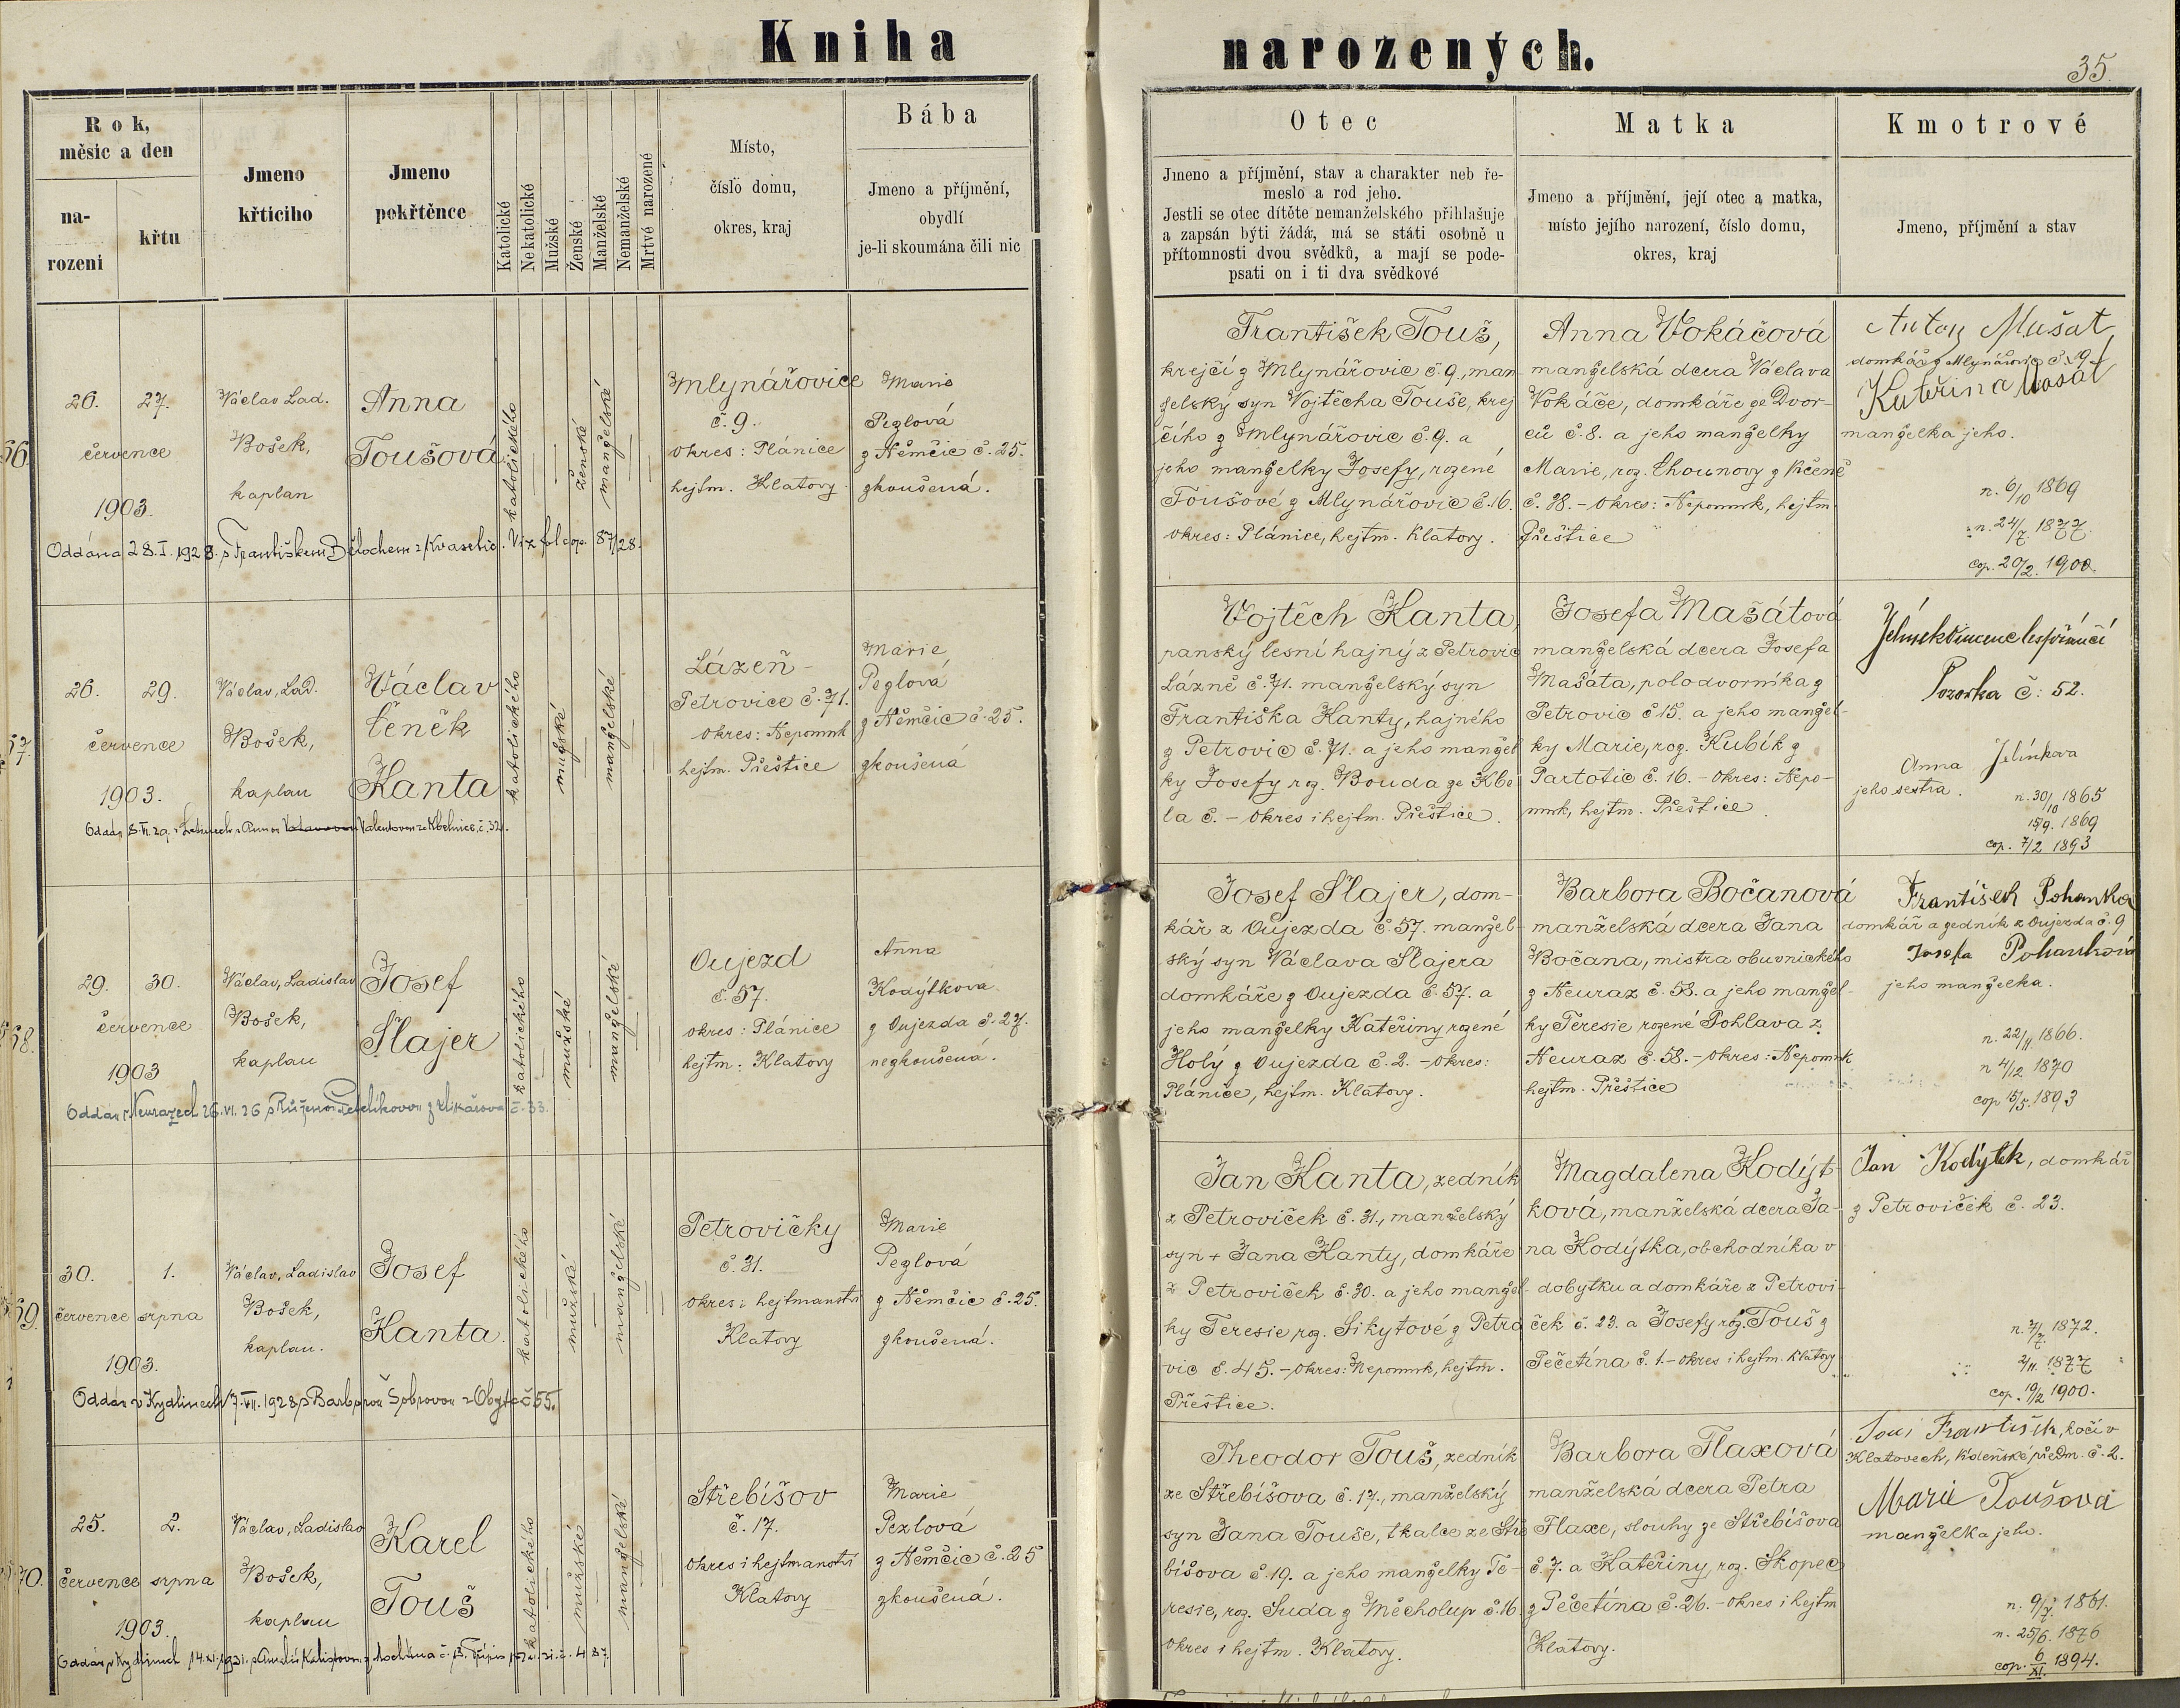 Kniha narozených.
35.
Rok, měsic a den
narození
křtu
Jmeno křtícího
Jmeno pokřtěnce
Katolické
Nekatolické
Mužské
Ženské
Manželské
Nemanželské
Mrtvé narozené
Místo,
číslo domu,
okres, kraj
Bába
Jmeno a příjmění,
obydlí
je-li skoumána čili nic
Otec
Jmeno a příjmění, stav a charakter neb ře-
meslo a rod jeho.
Jestli se otec dítěte nemanželského přihlašuje
a zapsán býti žádá, má se státi osobně u
přítomnosti dvou svědků, a mají se pode-
psati on i ti dva svědkové
Matka
Jmeno a příjmění, její otec a matka,
místo jejího narození, číslo domu,
okres, kraj
Kmotrové
Jmeno, příjmění a stav
26. 27.
července
1903.
Václav Lad.
Bošek,
kaplan
Anna
Toušová
katolického
ženské
manželské
Mlynářovice
č. 9.
okres: Plánice
hejtm. Klatovy
Marie
Pezlová
z Němčic č. 25.
zkoušená.
Oddána 28. I. 1928. s Františkem Bělochem z Kvasetic. Viz fol cop. 87/28.
František Touš,
krejčí z Mlynářovic č. 9., man-
želský syn Vojtěcha Touše, krej
čího z Mlynářovic č. 9. a
jeho manželky Josefy, rozené
Toušové z Mlynářovic č. 16.
okres: Plánice, hejtm. Klatovy.
Anna Vokáčová
manželská dcera Václava
Vokáče, domkáře ze Dvor-
ců č. 8. a jeho manželky
Marie, roz. Chounovy z Kčeně
č. 38. - okres: Nepomuk, hejtm.
Přeštice
Anton Mušat
domkář z Mlynářovic č. 19.
Kateřina
manželka jeho.
n. 6/10 1869
n. 24/7. 1877.
cop. 20/2. 1900.
26. 29.
července
1903.
Václav, Lad.
Bošek,
kaplan
Václav
Čeněk
Kanta
katolického
mužské
manželské
Lázeň -
Petrovice č. 71.
okres: Nepomuk
hejtm. Přeštice
Marie
Pezlová
z Němčic č. 25.
zkoušená
Vojtěch Kanta,
panský lesní hajný z Petrovic
Lázně č. 71. manželský syn
Františka Kanty, hajného
z Petrovic č. 71. a jeho manžel
ky Josefy roz. Bouda ze Kbe
la č. - okres i hejtm. Přeštice.
Josefa Mašátová
manželská dcera Josefa
Mašáta, polodvorníka z
Petrovic č 15. a jeho manžel-
ky Marie, roz. Kubík z
Partotic č. 16. - okres: Nepo-
muk, hejtm. Přeštice.
Pozorka č: 52.
Anna Jelínkova
jeho sestra.
n. 30/10 1865
15/9. 1869
cop. 7/2 1893
29. 30.
července
1903
Václav, Ladislav
Bošek,
kaplan
Josef
Šlajer
katolického
mužské
manželské
Oujezd
č. 57.
okres: Plánice
hejtm: Klatovy
Anna
Kodýtková
z Oujezda č. 27.
nezkoušená.
Josef Šlajer, dom-
kář z Oujezda č. 57. manžel-
ský syn Václava Šlajera
domkáře z Oujezda č. 57. a
jeho manželky Kateřiny rozené
Holý z Oujezda č. 2. - okres:
Plánice, hejtm. Klatovy.
Barbora Bočanová
manželská dcera Jana
Bočana, mistra obuvnického
z Neuraz č. 58. a jeho manžel-
ky Teresie rozené Pohlava z
Neuraz č. 58. - okres: Nepomuk
hejtm. Přeštice
František Pohanka
domkář a zedník z Oujezda č. 9
Josefa Pohanková
jeho manželka.
n. 22/11 1866.
n 4/12 1870
cop 15/5. 1893
30. 1.
července srpna
1903.
Václav, Ladislav
Bošek,
kaplan.
Josef
Kanta.
katolického
mužské
manželské
Petrovičky
č. 31.
okres i hejtmanství
Klatovy
Marie
Pezlová
z Němčic č. 25.
zkoušená.
Jan Kanta, zedník
z Petroviček č. 31., manželský
syn + Jana Kanty, domkáře
z Petroviček č. 30. a jeho manžel-
ky Teresie roz. Sikytové z Petro
vic č. 45. - okres: Nepomuk, hejtm.
Přeštice.
Magdalena Kodýt-
ková, manželská dcera Ja-
na Kodýtka, obchodníka v
dobytku a domkáře z Petrovi-
ček č. 23. a Josefy roz. Touš z
Pečetína č. 1. - okres i hejtm. Klatovy
Jan Kodýtek, domkář
z Petroviček č. 23.
n. 4/7. 1872.
2/11. 1877
cop. 19/2 1900.
25. 2.
července srpna
1903.
Václav, Ladislav
Bošek,
kaplan
Karel
Touš
katolického
mužské
manželské
Střebíšov
č. 17.
okres i hejtmanství
Klatovy
Marie
Pezlová
z Němčic č. 25
zkoušená.
Theodor Touš, zedník
ze Střebíšova č. 17., manželský
syn Jana Touše, tkalce ze Stře
bíšova č. 19. a jeho manželky Te-
resie, roz. Suda z Měcholup č. 16.
okres i hejtm. Klatovy.
Barbora Flaxová
manželská dcera Petra
Flaxe, slouhy ze Střebíšova
č. 7. a Kateřiny, roz. Skopec
z Pečetína č. 26. - okres i hejtm
Klatovy.
František, kočí v
Klatovech, Vídeňské předm. č. 2.
Marie Toušová
manželka jeho.
n. 9/7. 1861.
n. 25/6. 1876
cop. 6/XI. 1894.